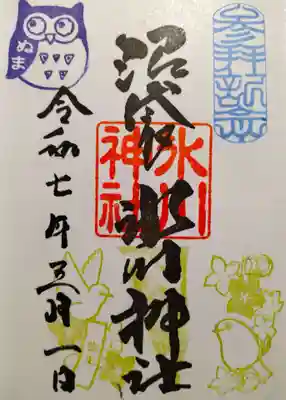 参拝記念
沼袋氷川神社
氷川神社
令和七年三月一日
ぬま